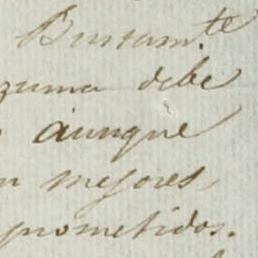 Bustam.te
zuma debe
aunque
n mejores,
prometidos.